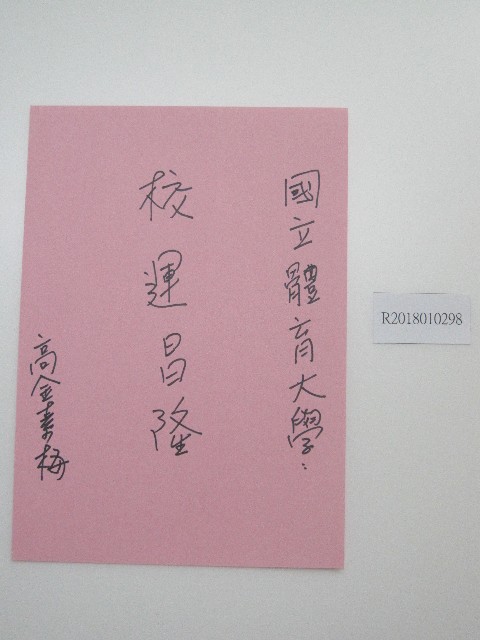 國立體育大學:
校運昌隆
高金素梅
R2018010298